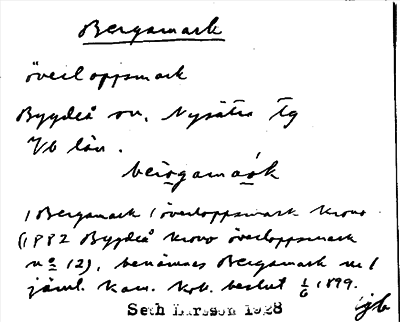 Bergsmark
överloppsmark
Bygdeå sn. Nysätra tg
Vb län.
/ Bergsmark / överloppsmark krono
(1882 Bygdeå krono överloppsmark
no 12), benämnes Bergsmark nr 1
jäml. Kam. Kol. beslut 1/6 1899.
Seth Larsson 1928